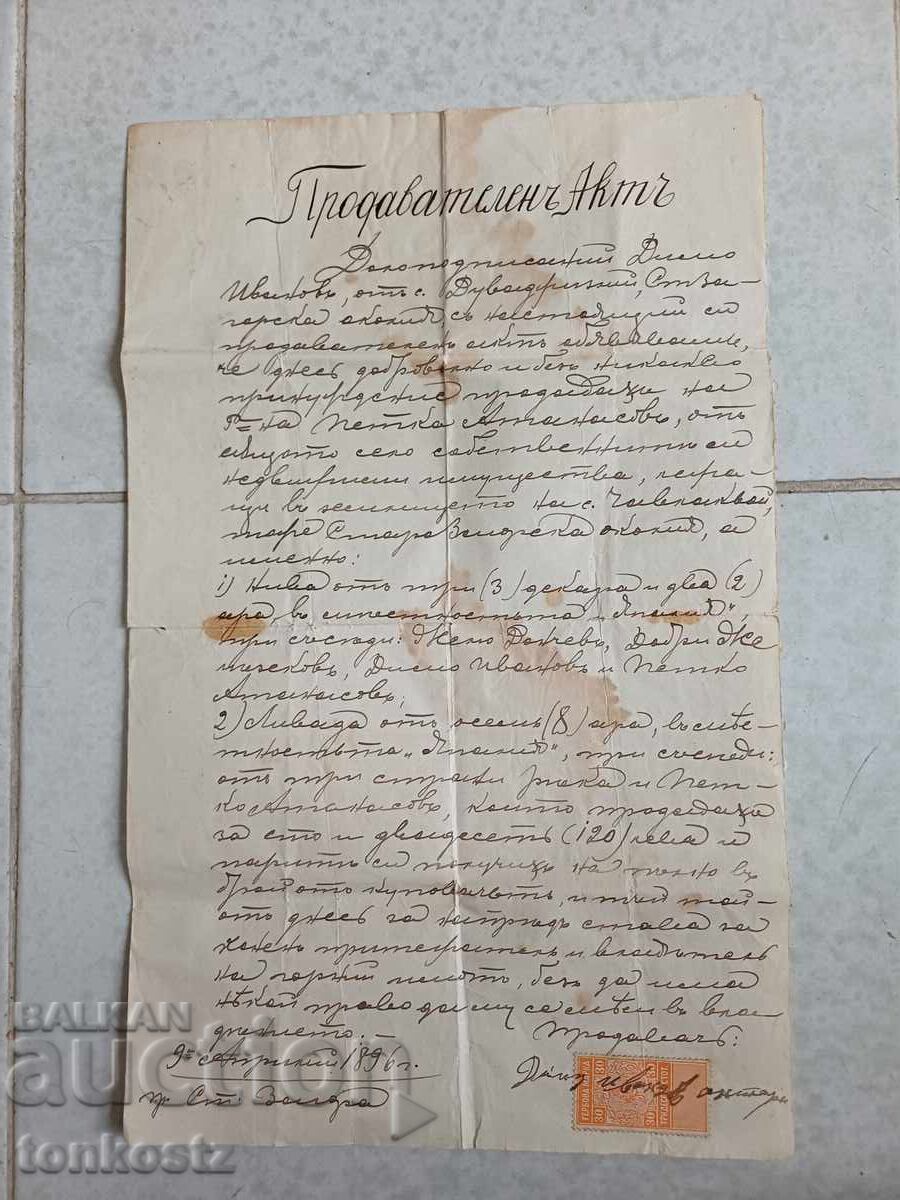 Продавателенъ Актъ
Долоподписаний Дило
Ивановъ, отъ с. Дуваджий, Ст. За-
горска околия съ настоящий си
продавателенъ актъ обявявамъ,
че днесъ доброволно и безъ никакво
принуждение продадохъ на
Г-на Петка Атанасовъ, отъ
същото село собственнитѣ си
недвижими имущества, лежа-
щи въ землището на с.
Старо Загорска околия, а
именно:
1) Нива отъ три (3) декара и два (2)
ара, въ местностьта
при съседи: Жело Дочевъ, Добри Же
Дило Ивановъ и Петко
Атанасовъ;
2) Ливада отъ осемь (8) ара, въ мѣс-
тностьта при съседи:
отъ три страни рѣка и Пет-
ко Атанасовъ, които продадохъ
за сто и двадесеть (120) лева и
паритѣ си получихъ на пълно въ
брой отъ купувачътъ, и тъй той
отъ днесъ за напрѣдъ става за
коненъ притежатель и владѣтель
на горний имотъ, безъ да има
нѣкой право да му се мѣси въ вла
дѣнието.
Продавачъ:
9й Априлий 1896 г.
гр. Ст. Загора
Дило Ивановъ
ГЕРБОВА МАРКА
30 30
ТРИДЕСЕТ СТОТ.
BALKAN
auction
tonkostz tonkostz